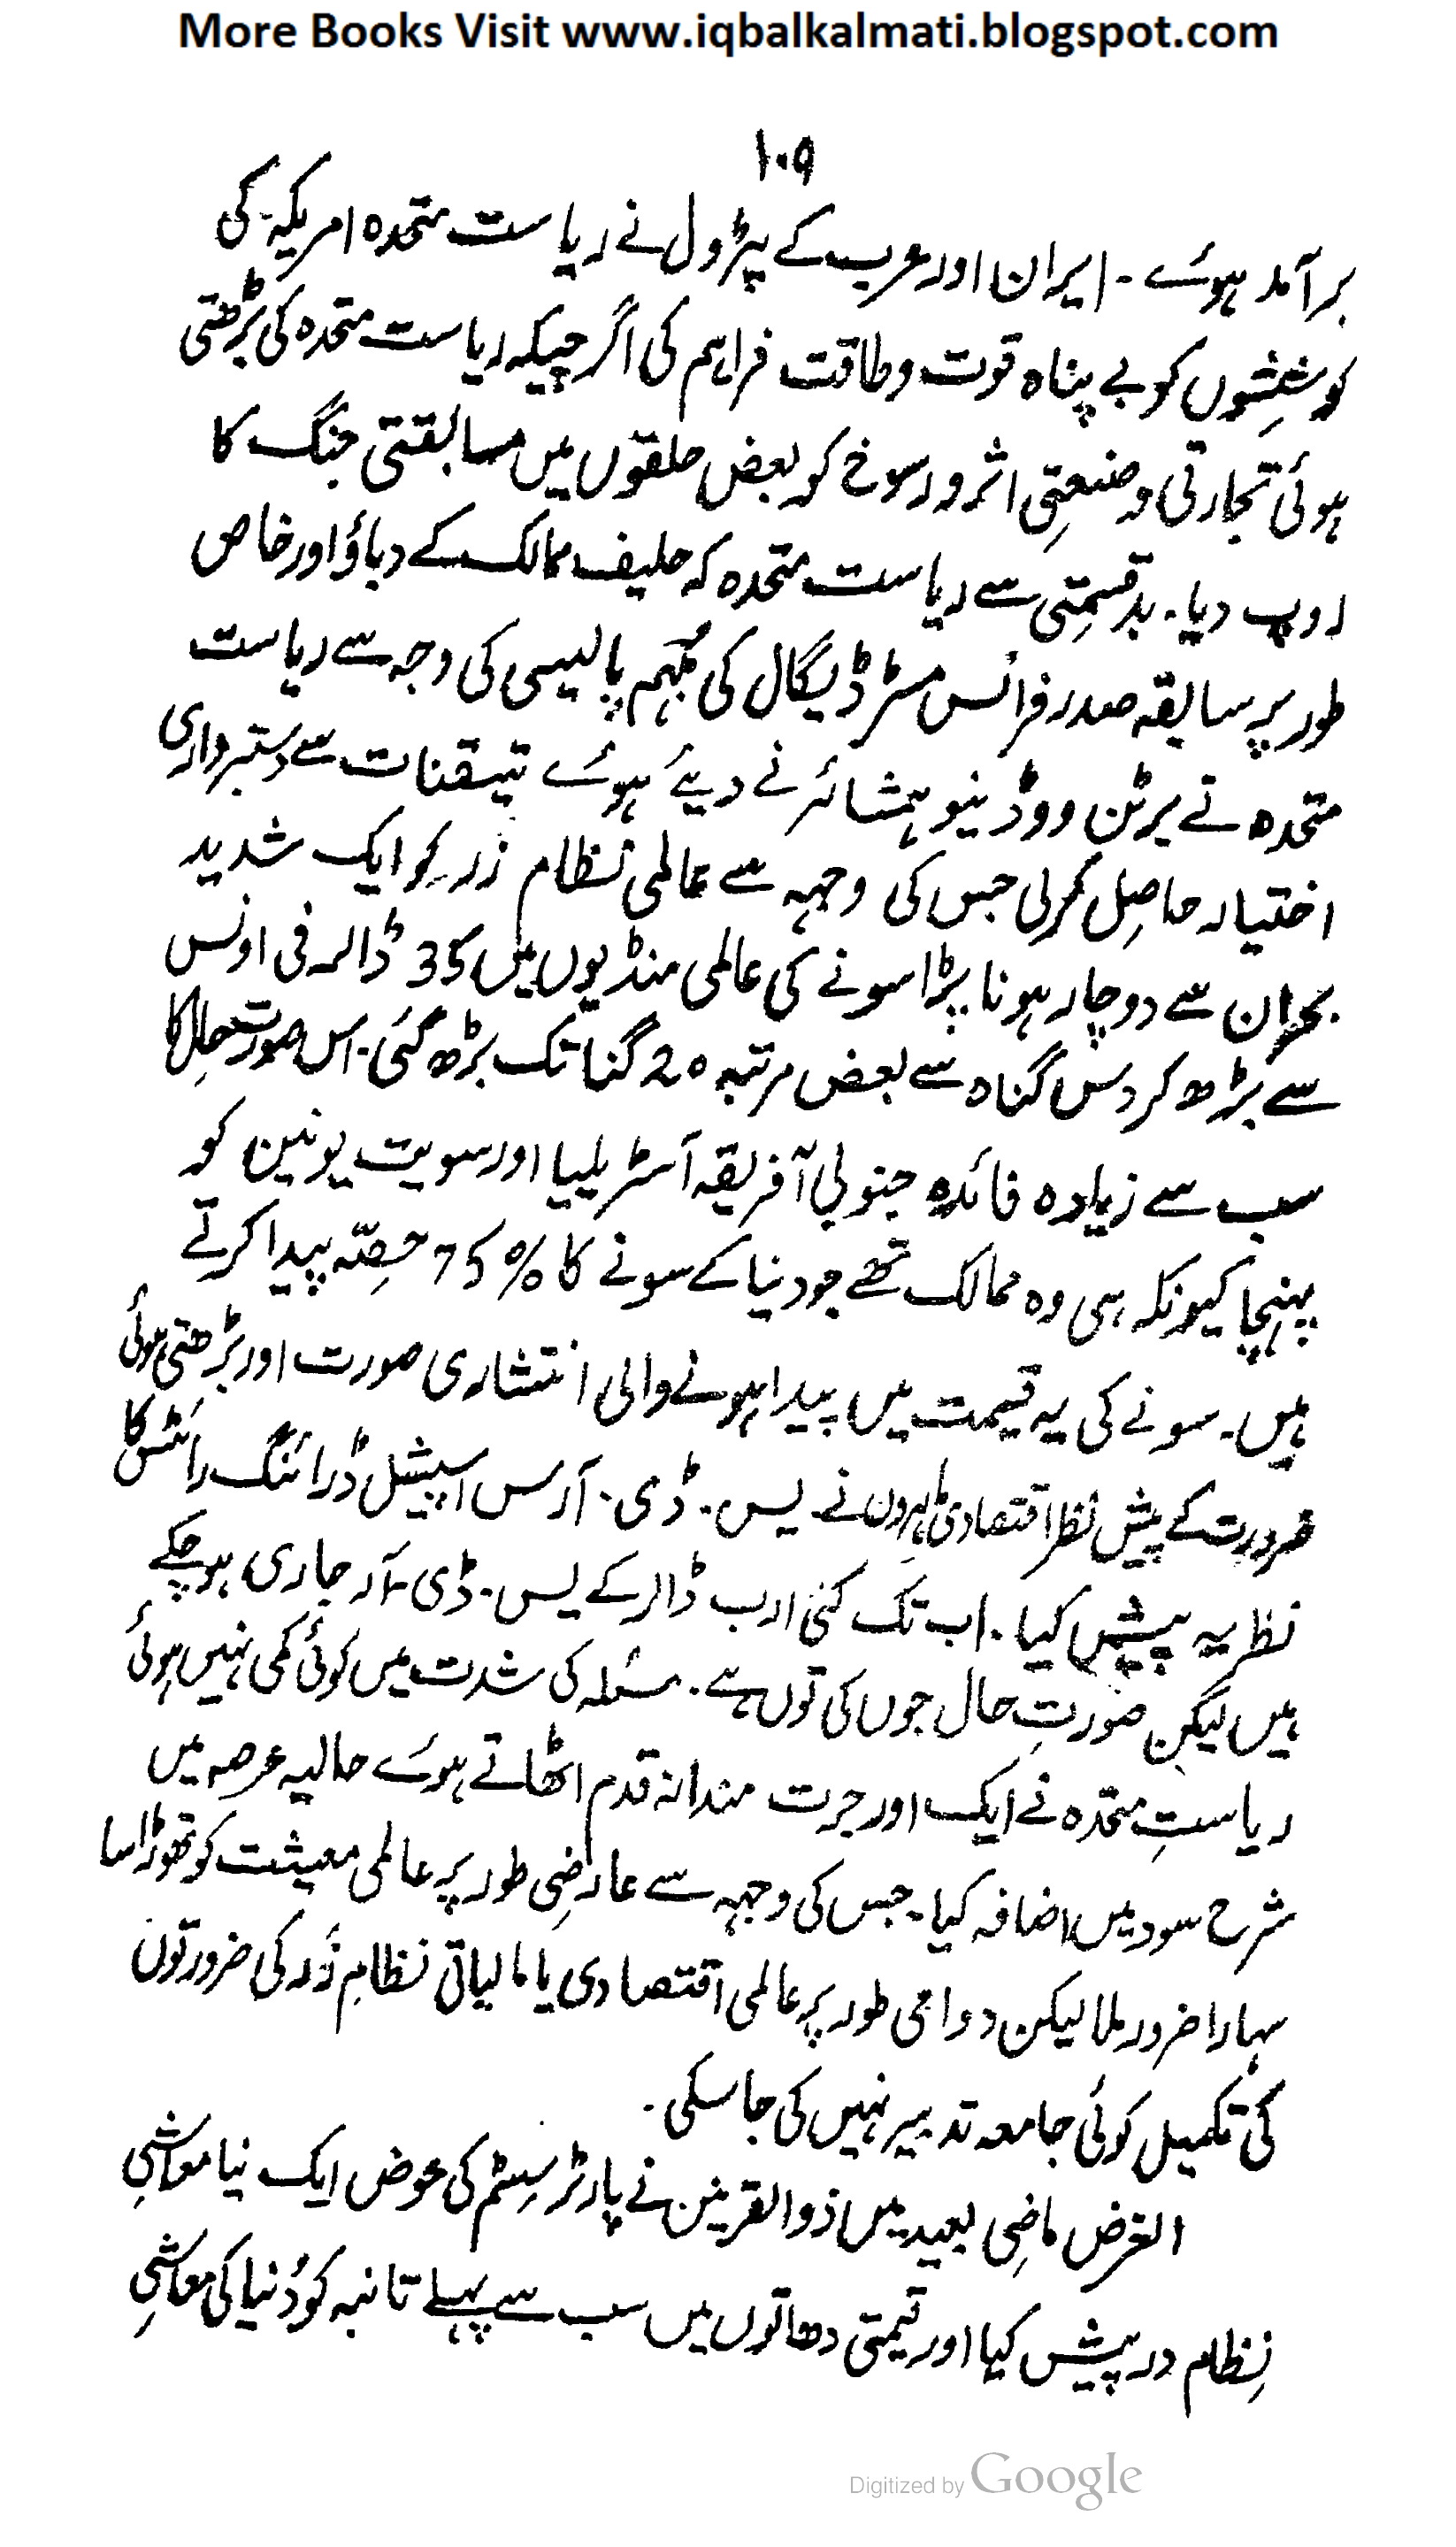 More Books Visit www.iqbalkalmati.blogspot.com
۱۰۹
برآمد ہوئے ۔ ایران اور عرب کے پٹرول نے ریاست متحدہ امریکہ کی
کوششوں کو بے پناہ قوت و طاقت فراہم کی اگر چیکہ ریاست متحدہ کی بڑھتی
ہوئی تجارتی و صنعتی اثر و رسوخ کو بعض حلقوں میں مسابقتی جنگ کا
روپ دیا ۔ بدقسمتی سے ریاست متحدہ کہ حلیف ممالک کے دباؤ اور خاص
طور پر سابقہ صدر فرانس مسٹر ڈیگال کی مُبہم پالیسی کی وجہ سے ریاست
متحدہ نے برٹن ووڈ نیو ہمشائر نے دیئے ہوئے تیقنات سے دستبرداری
اختیار حاصِل کرلی جس کی وجہہ سے عالمی نظام زر کو ایک شدید
بحران سے دوچار ہونا پڑا سونے کی عالمی منڈیوں میں 35 ڈالر فی اونس
سے بڑھ کر دس گناہ سے بعض مرتبہ 20 گنا تک بڑھ گئی ۔ اس صورت حال کا
سب سے زیادہ فائدہ جنوبی آفریقہ آسٹریلیا اور سویت یونین کو
پہنچا کیونکہ یہی وہ ممالک تھے جو دنیا کے سونے کا %75 حصّہ پیدا کرتے
ہیں ۔ سونے کی یہ قیمت میں پیدا ہونے والی انتشاری صورت اور بڑھتی ہوئی
ضرورت کے پیش نظر اقتصادی ماہرون نے یس ۔ ڈی ۔ آرس اسپیشل ڈرائنگ رائٹس کا
نظریہ پیش کیا ۔ اب تک کئی ارب ڈالر کے یس ۔ ڈی ۔ آر جاری ہوچکے
ہیں لیکن صورتِ حال جوں کی توں ہے ۔ مسئلہ کی شدت میں کوئی کمی نہیں ہوئی
ریاستِ متحدہ نے ایک اور جرت مندانہ قدم اٹھاتے ہوئے حالیہ عرصہ میں
شرح سود میں اضافہ کیا ۔ جس کی وجہہ سے عارضِی طور پر عالمی معیشت کو تھوڑا سا
سہارا ضرور ملا لیکن دوامی طور پر عالمی اقتصادی یا مالیاتی نظامِ زَر کی ضرورتوں
کی تکمیل کوئی جامعہ تدبیر نہیں کی جا سکی ۔
الغرض ماضِی بعید میں ذوالقرنین نے بارٹر سِسٹم کی عوض ایک نیا معاشی
نِظام درپیش کیا اور قیمتی دھاتوں میں سب سے پہلے تانبہ کو دُنیا کی معاشی
Digitized by Google